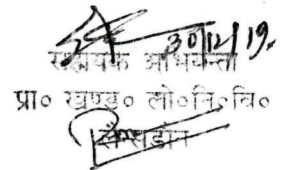 30/12/19.
सहायक अभियन्ता
प्रा० खण्ड० लो०नि०वि०
लैंसडौन